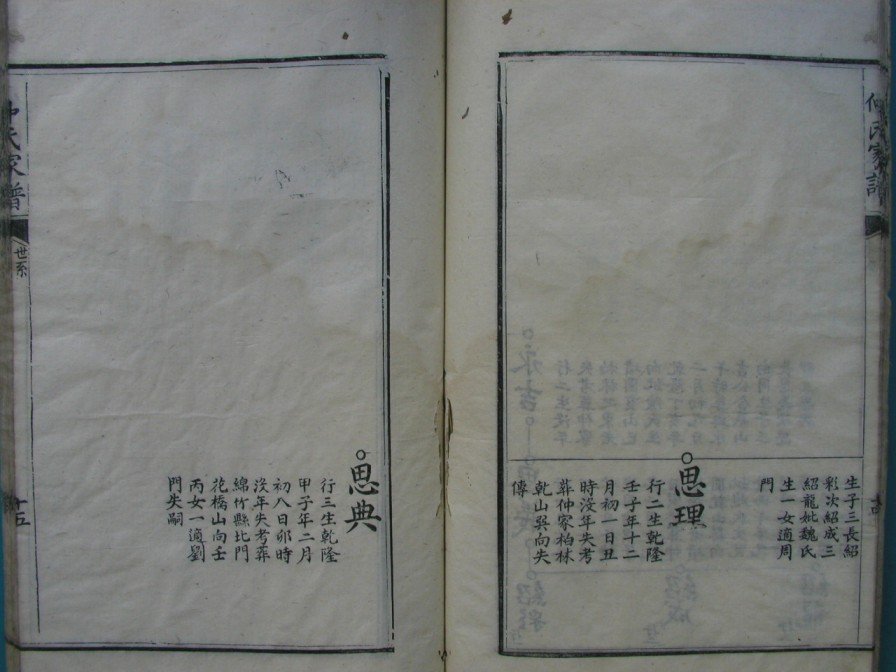 仲氏家譜
生子三長紹
彩次紹成三
紹龍妣魏氏
生一女適周
門
思理
行二生乾隆
壬子年十二
月初一日丑
時沒年失考
葬仲家柏林
乾山巽向失
傳
思典
行三生乾隆
甲子年二月
初八日卯時
沒年失考葬
綿竹縣北門
花橋山向壬
丙女一適劉
門失嗣
仲氏家譜
世系
十五